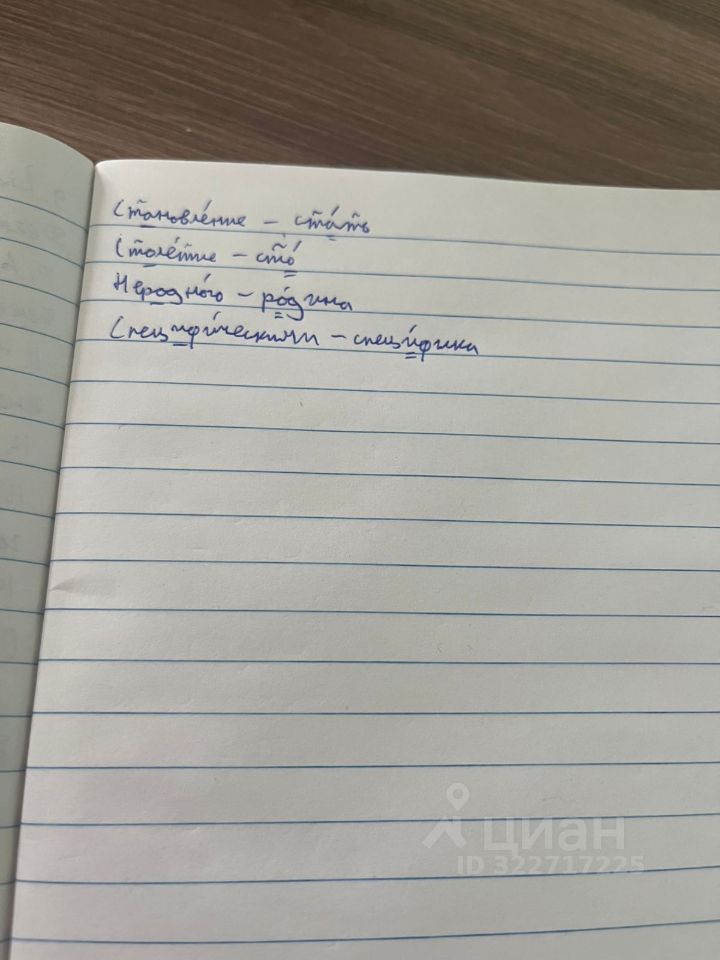 Становле́ние - ста́ть
Столе́тие - сто́
Неродно́го - ро́дина
Специфи́ческими - специ́фика
циан
ID 322717225